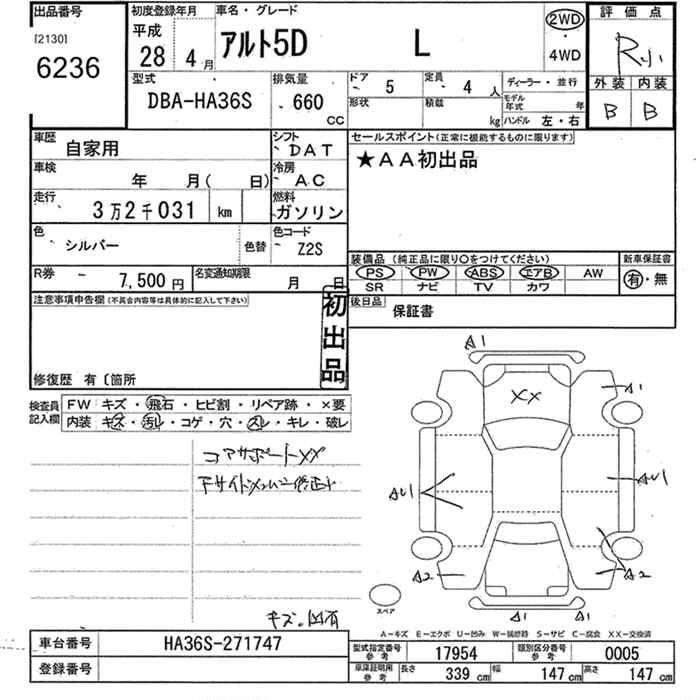 出品番号
[2130]
6236
初度登録年月
平成
28 4月
車名・グレード
アルト5D L
2WD
・
4WD
評価点
R小
外装 内装
B B
型式
DBA-HA36S
排気量
660
CC
ドア
5
定員
4 人
形状
積載
kg
ディーラー・並行
モデル年式 年
ハンドル 左・右
車歴
自家用
シフト
DAT
車検
年 月( 日)
冷房
AC
走行
3万2千031 km
燃料
ガソリン
色
シルバー
色替
色コード
Z2S
R券
7,500円
名変通知期限
月 日
セールスポイント(正常に機能するものに限ります)
★AA初出品
装備品 (純正品に限り〇をつけてください)
PS PW ABS エアB AW
SR ナビ TV カワ
新車保証書
有・無
後日品
保証書
注意事項申告欄(不具合内容等は具体的に記入して下さい)
初出品
修復歴 有〔箇所
検査員記入欄
FW キズ・飛石・ヒビ割・リペア跡・×要
内装 キズ・汚レ・コゲ・穴・スレ・キレ・破レ
コアサポートXX
キズ。凹有
A1
XX
A1
AU1
AU1
A2
A2
A1
A1
スペア
A-キズ E-エクボ U-凹み W-補修跡 S-サビ C-腐食 XX-交換済
車台番号
HA36S-271747
登録番号
型式指定番号
参考
17954
類別区分番号
参考
0005
車庫証明用
参考
長さ 339 cm 幅 147 cm 高さ 147 cm